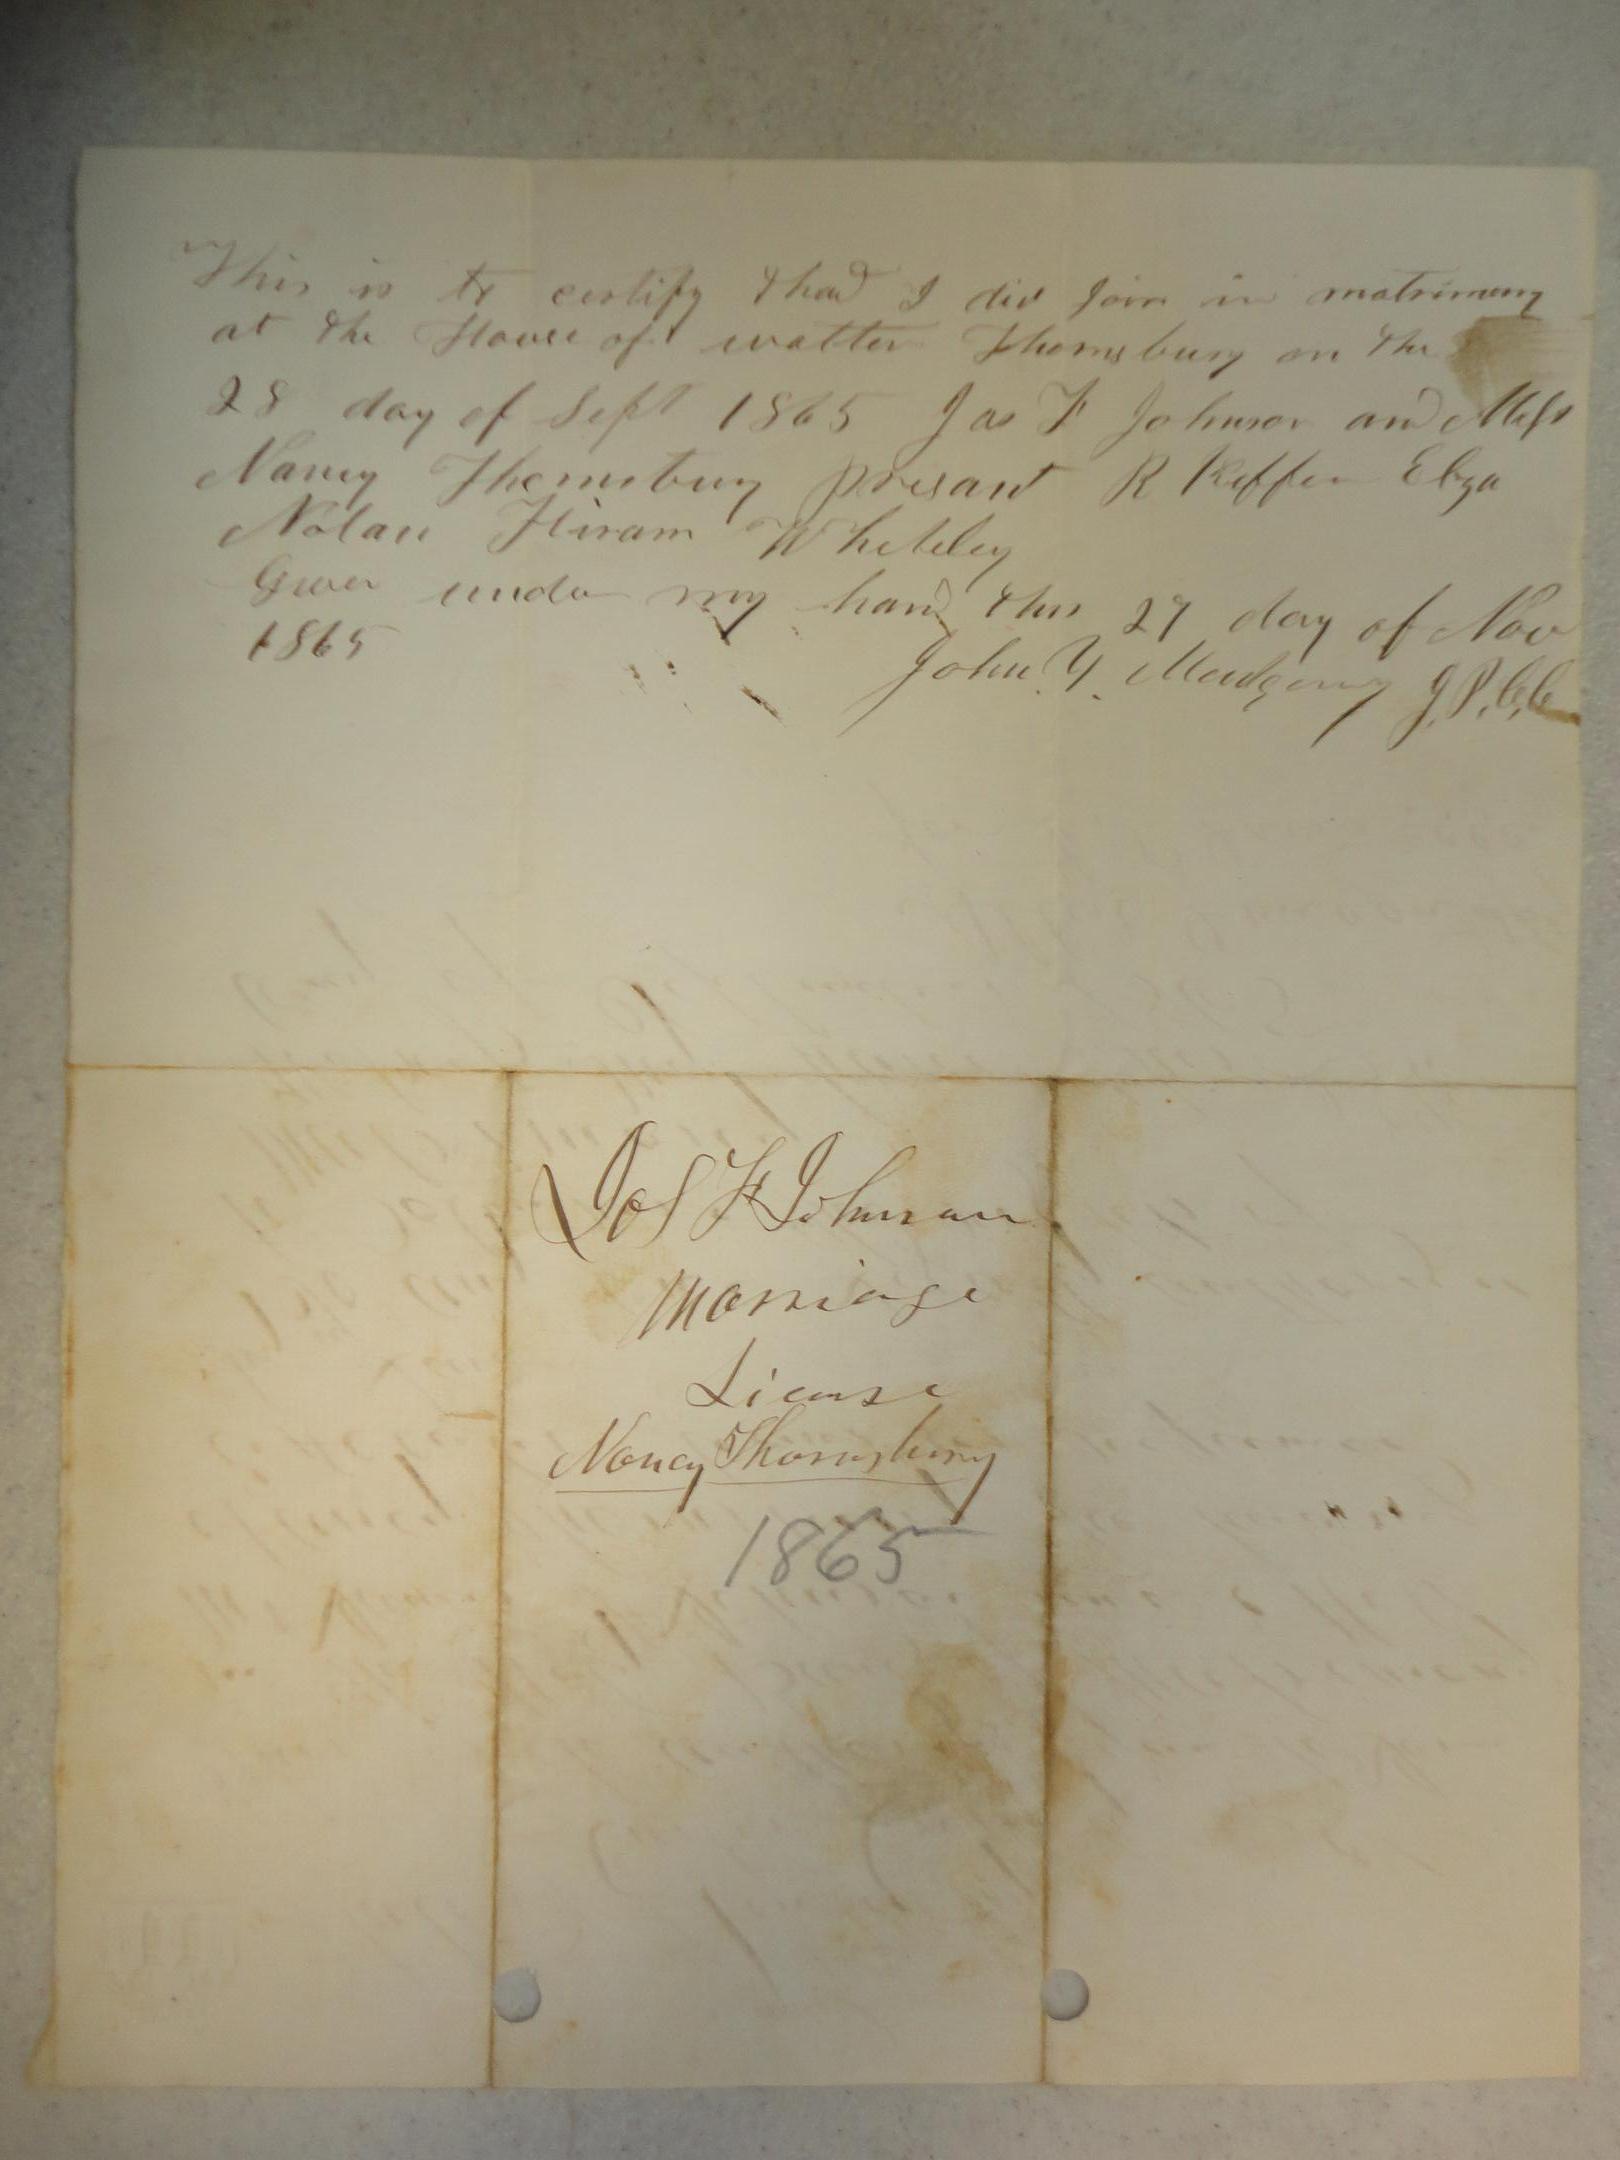 This is to certify that I did join in matrimony
at the House of walter Thornsbury on the
28 day of Sept 1865 Jas F Johnson and Miss
Nancy Thornsbury presant R Keffer
Nolan Hiram Whiteley
Given under my hand this 27 day of Nov
1865
John Y. J.P.C.C
Jas F Johnson
Marriage
License
Nancy Thornsbury
1865